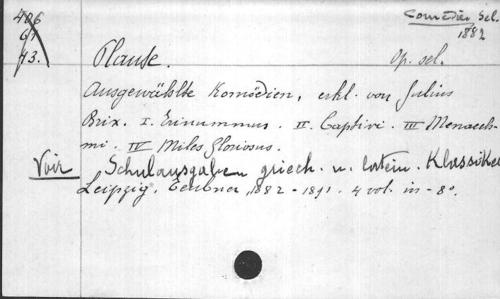 406
67
73.
Comédies Sel.
1882
Plaute.
Op. sel.
Ausgewählte Komödien, erkl. von Julius
Brix. I. Trinummus. II. Captivi. III Menaech-
mi. IV Miles Gloriosus.
Voir Schulausgaben griech. u. latein. Klassiker
Leipzig, Teubner, 1882-1891. 4 vol. in-8º.